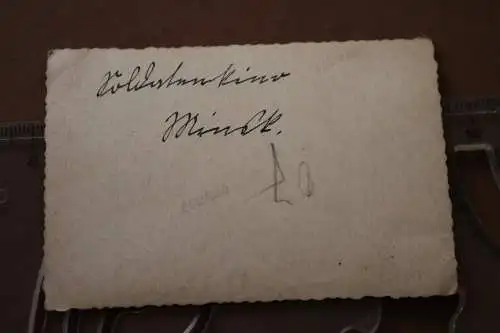 Soldatenkino
Minsk.